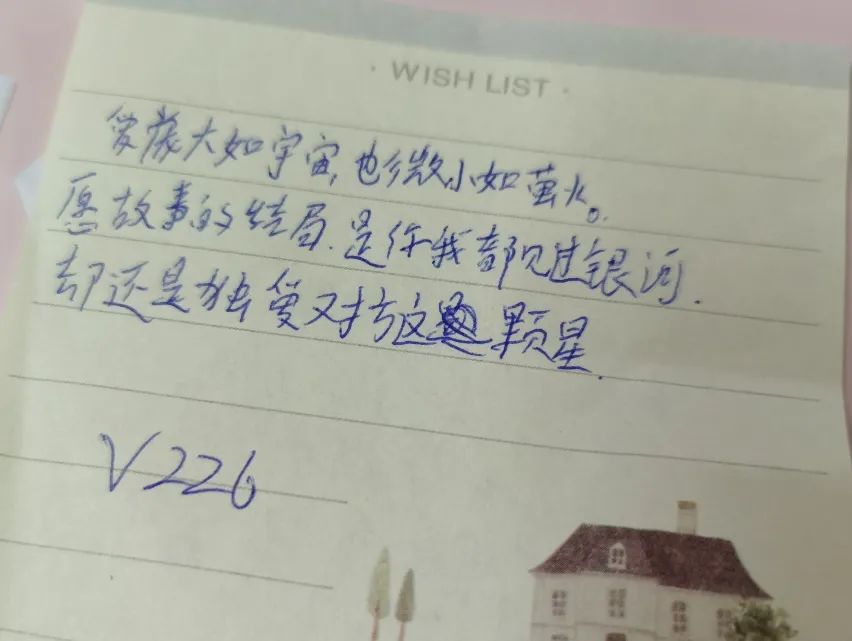 · WISH LIST ·
爱藏大如宇宙,也微小如萤火。
愿故事的结局.是你我都见过银河.
却还是独爱对方这颗星.
V226